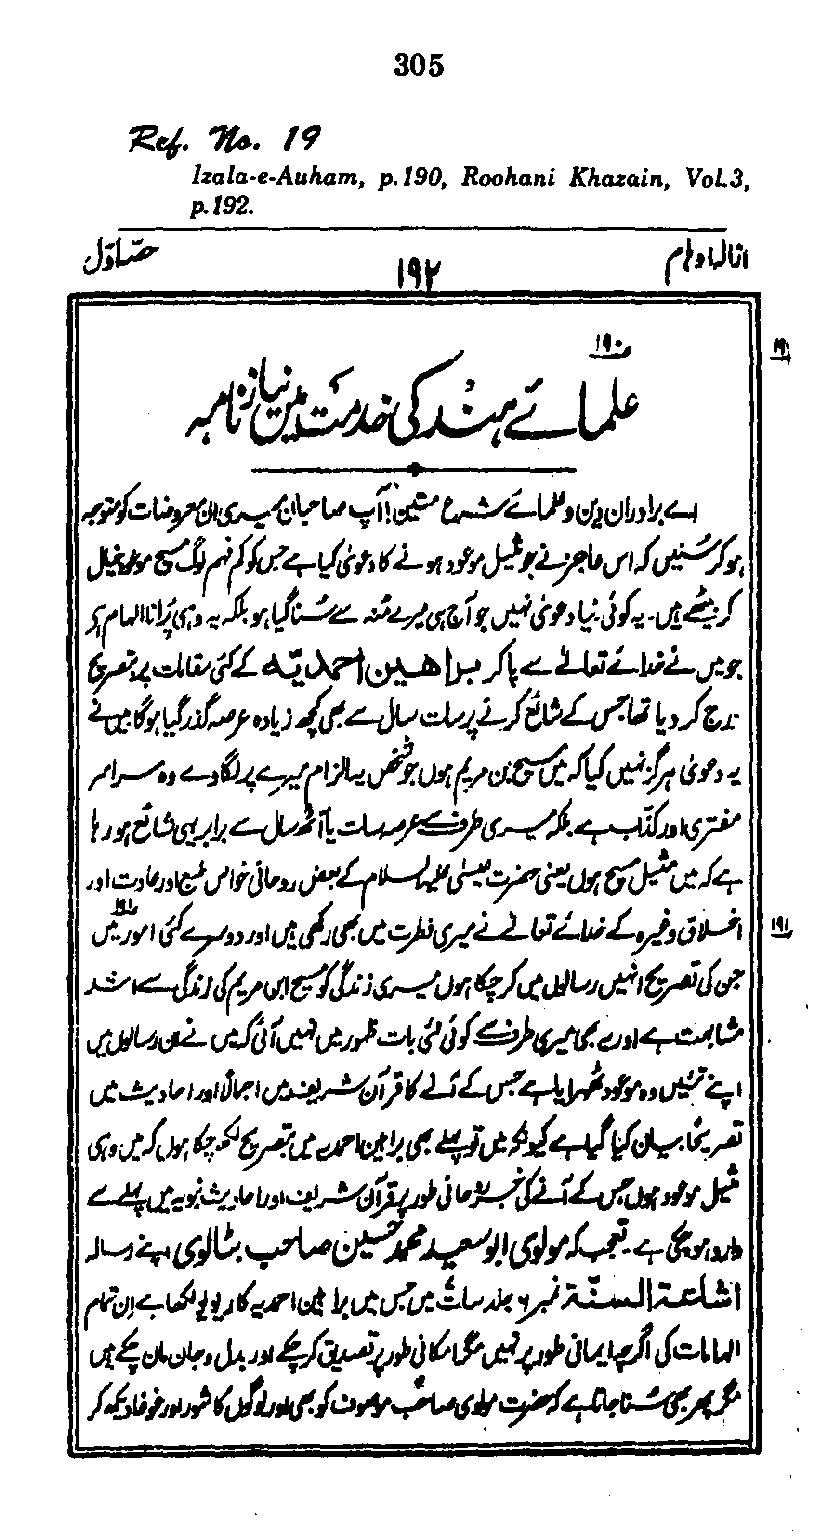 305
Ref. No. 19
Izala-e-Auham, p.190, Roohani Khazain, Vol.3,
p.192.
ازالہ اوہام ۱۹۲ حصہ اوّل
۱۹۰
۱۹۱
علمائے ہند کی خدمت میں نیاز نامہ
اے برادران دین و علمائے شرع متین! آپ صاحبان میری ان معروضات کو متوجہ
ہو کر سنیں کہ اس عاجز نے جو مثیل موعود ہونے کا دعویٰ کیا ہے جس کو کم فہم لوگ مسیح موعود خیال
کر بیٹھے ہیں۔ یہ کوئی نیا دعویٰ نہیں جو آج ہی میرے منہ سے سُنا گیا ہو بلکہ یہ وہی پُرانا الہام ہے
جو میں نے خدائے تعالیٰ سے پا کر براہین احمدیہ کے کئی مقامات پر بتصریح
درج کر دیا تھا جس کے شائع کرنے پر سات سال سے بھی کچھ زیادہ عرصہ گذر گیا ہوگا میں نے
یہ دعویٰ ہرگز نہیں کیا کہ میں مسیح بن مریم ہوں جو شخص یہ الزام میرے پر لگاوے وہ سراسر
مفتری اور کذاب ہے بلکہ میری طرف سے عرصہ سات یا آٹھ سال سے برابر یہی شائع ہو رہا
ہے کہ میں مثیل مسیح ہوں یعنی حضرت عیسیٰ علیہ السلام کے بعض روحانی خواص طبع اور عادت اور
اخلاق وغیرہ کے خدائے تعالیٰ نے میری فطرت میں بھی رکھی ہیں اور دوسرے کئی امور میں
۱۹۱
۱۹۱
جن کی تصریح انہیں رسالوں میں کر چکا ہوں میری زندگی کو مسیح ابن مریم کی زندگی سے اشد
مشابہت ہے اور یہ بھی میری طرف سے کوئی نئی بات ظہور میں نہیں آئی کہ میں نے ان رسالوں میں
اپنے تئیں وہ موعود ٹھہرایا ہے جس کے آنے کا قرآن شریف میں اجمالاً اور احادیث میں
تصریحاً بیان کیا گیا ہے کیونکہ میں تو پہلے بھی براہین احمدیہ میں بتصریح لکھ چکا ہوں کہ میں وہی
مثیل موعود ہوں جس کے آنے کی خبر روحانی طور پر قرآن شریف اور احادیث نبویہ میں پہلے سے
وارد ہو چکی ہے۔ تعجب کہ مولوی ابو سعید محمد حسین صاحب بٹالوی اپنے رسالہ
اشاعۃ السنۃ نمبر ۶ جلد سات میں جس میں براہین احمدیہ کا ریویو لکھا ہے ان تمام
الہامات کی اگرچہ ایمانی طور پر نہیں مگر امکانی طور پر تصدیق کر چکے اور بدل و جان مان چکے ہیں
مگر پھر بھی سُنا جاتا ہے کہ حضرت مولوی صاحب موصوف کو بھی اور لوگوں کا شور اور غوغا دیکھ کر